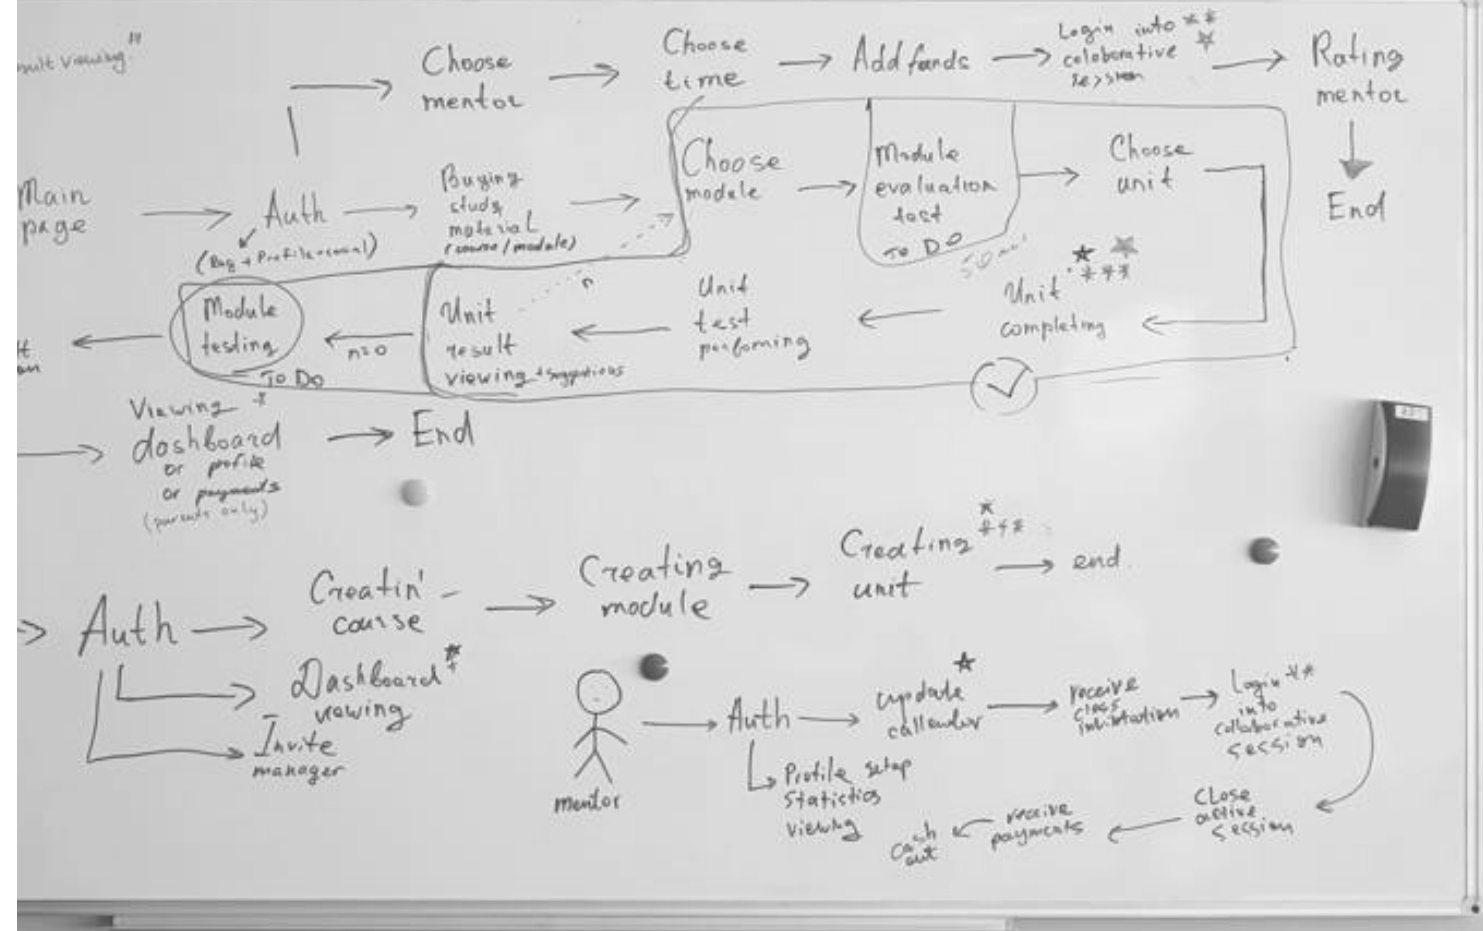 viewing"
Choose
mentor
Choose
time
Add funds
Login into **
colaborative
session
Rating
mentor
End
Main
page
Auth
Buying
study
material
(course/module)
Choose
module
Module
evaluation
test
TO DO
Choose
unit
Module
testing
TO DO
n=0
Unit
result
viewing + suggestions
n
Unit
test
performing
Unit ***
completing
Viewing *
dashboard
or profile
or payments
(parents only)
End
Auth
Creatin'
course
Creating
module
Creating ***
unit
end
Dashboard *
viewing
Invite
manager
mentor
Auth
update
callendar
receive
class
Login **
into
collaborative
session
Profile setup
statistics
viewing
Close
active
session
receive
payments
cash
out